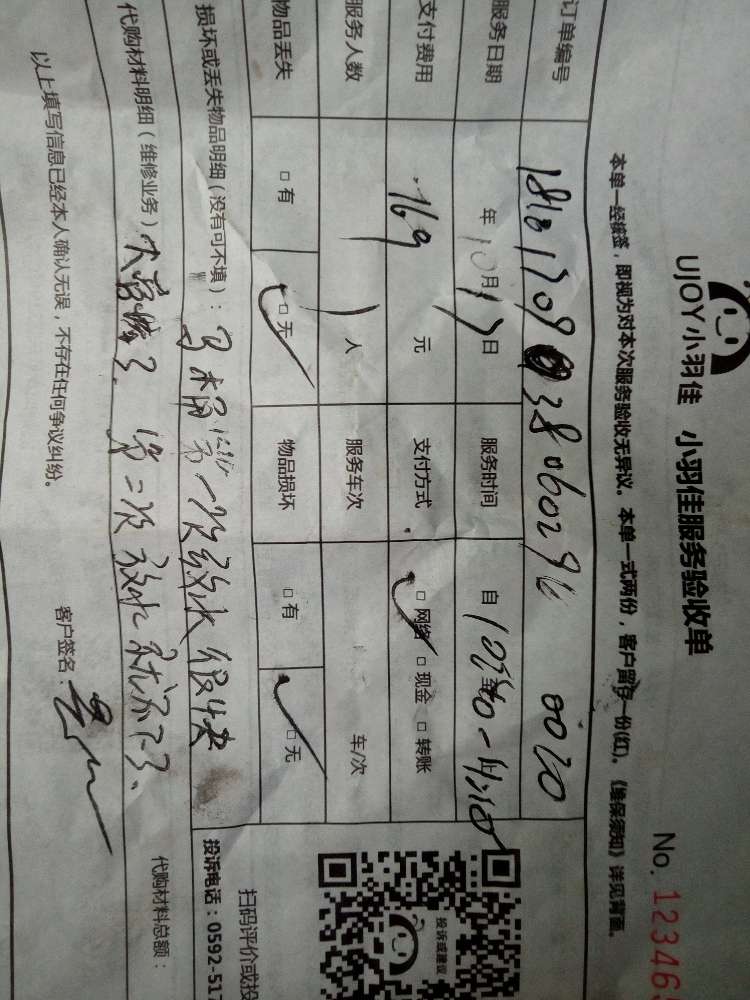 UJOY小羽佳 小羽佳服务验收单
No. 12346
本单一经核签，即视为对本次服务验收无异议。本单一式两份，客户留存一份(红)。《维保须知》详见背面。
订单编号
服务日期 年 10月 17日 服务时间 自
支付费用 169 元 支付方式 □网络 □现金 □转账
服务人数 1 人 服务车次 车/次
物品丢失 □有 □无 物品损坏 □有 □无
损坏或丢失物品明细（没有可不填）：马桶 第一次放水很快
代购材料明细（维修业务） 第二次放水就不行了。 代购材料总额：
以上填写信息已经本人确认无误，不存在任何争议纠纷。 客户签名：
投诉或建议
扫码评价或投
投诉电话：0592-517